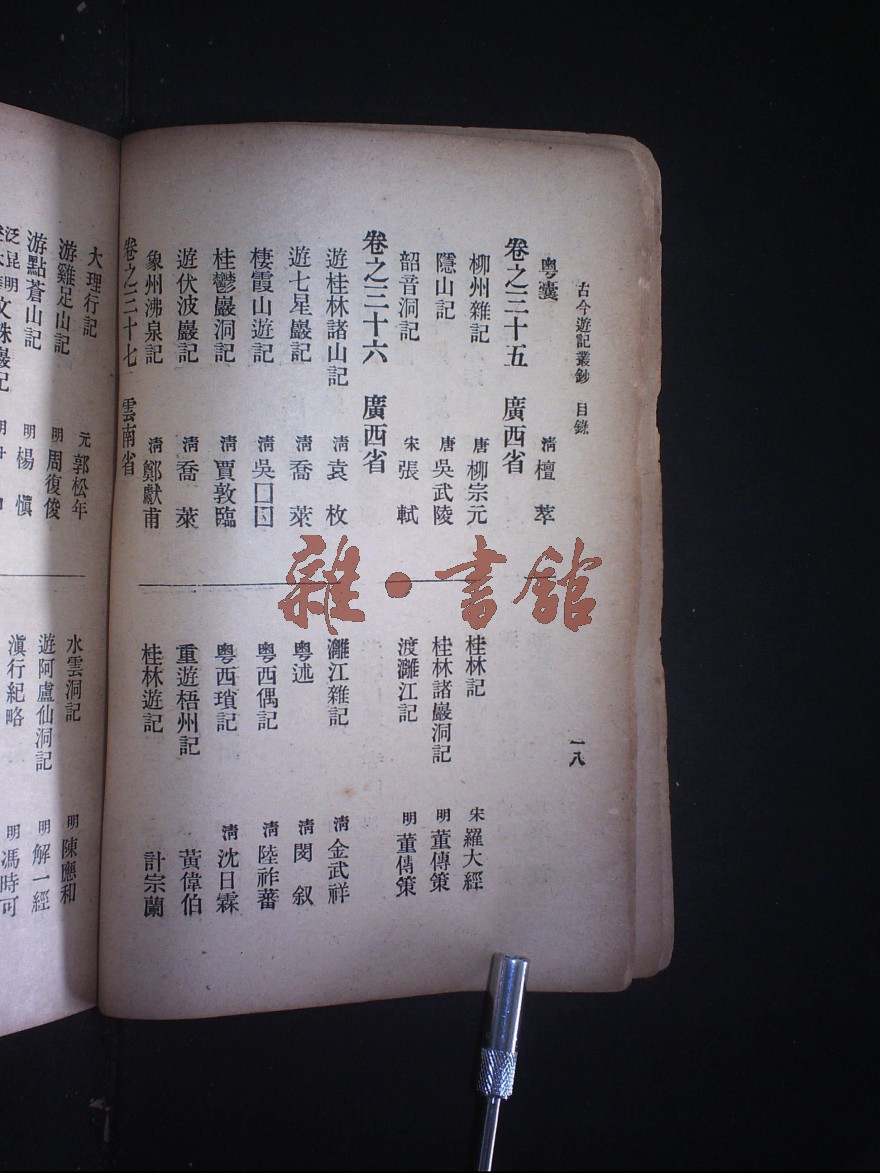 古今遊記叢鈔 目錄
一八
粵囊 清 檀萃
卷之三十五 廣西省
柳州雜記 唐 柳宗元
隱山記 唐 吳武陵
韶音洞記 宋 張軾
桂林記 宋 羅大經
桂林諸巖洞記 明 董傳策
渡灕江記 明 董傳策
卷之三十六 廣西省
遊桂林諸山記 清 袁枚
遊七星巖記 清 喬萊
棲霞山遊記 清 吳□□
桂鬱巖洞記 清 賈敦臨
遊伏波巖記 清 喬萊
象州沸泉記 清 鄭獻甫
灕江雜記 清 金武祥
粵述 清 閔叙
粵西偶記 清 陸祚蕃
粵西瑣記 清 沈日霖
重遊梧州記 黃偉伯
桂林遊記 計宗蘭
卷之三十七 雲南省
大理行記 元 郭松年
游雞足山記 明 周復俊
游點蒼山記 明 楊慎
泛昆明
文殊巖記 明
水雲洞記 明 陳應和
遊阿盧仙洞記 明 解一經
滇行紀略 明 馮時可
雜·書館